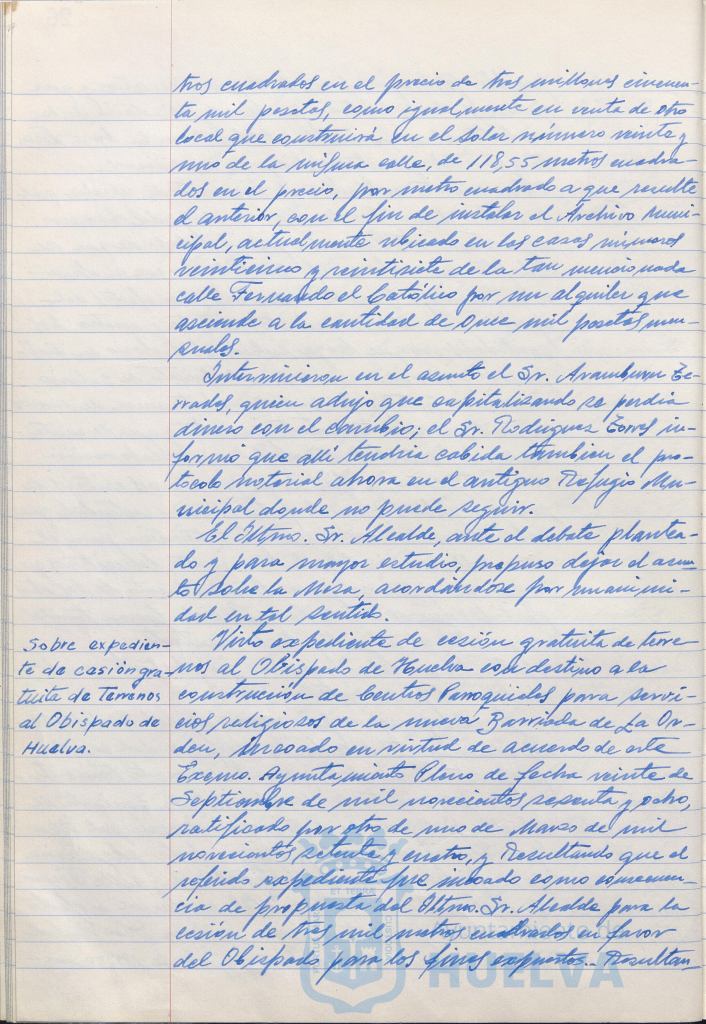 tros cuadrados en el precio de tres millones cincuen-
ta mil pesetas, como igualmente en venta de otro
local que construirá en el solar número veinte y
uno de la misma calle, de 118,55 metros cuadra-
dos en el precio, por metro cuadrado a que resulte
el anterior, con el fin de instalar el Archivo Muni-
cipal, actualmente ubicado en las casas números
veinticinco y veintisiete de la tan mencionada
calle Fernando el Católico por un alquiler que
asciende a la cantidad de once mil pesetas men-
suales.
Intervinieron en el asunto el Sr. Aramburu Te-
rrades, quien adujo que capitalizando se perdía
dinero con el cambio; el Sr. Rodríguez Torres in-
formó que allí tendría cabida tambien el pro-
tocolo notarial ahora en el antiguo Refugio Mu-
nicipal donde no puede seguir.
El Iltmo. Sr. Alcalde, ante el debate plantea-
do y para mayor estudio, propuso dejar el asun-
to sobre la Mesa, acordándose por unanimi-
dad en tal sentido.
Sobre expedien-
te de cesión gra-
tuita de Terrenos
al Obispado de
Huelva.
Visto expediente de cesión gratuita de terre-
nos al Obispado de Huelva con destino a la
construcción de Centros Parroquiales para servi-
cios religiosos de la nueva Barriada de La Or-
den, incoado en virtud de acuerdo de este
Excmo. Ayuntamiento Pleno de fecha veinte de
Septiembre de mil novecientos sesenta y ocho,
ratificado por otro de uno de Marzo de mil
novecientos setenta y cuatro, y Resultando que el
referido expediente fue incoado como consecuen-
cia de propuesta del Iltmo. Sr. Alcalde para la
cesión de tres mil metros cuadrados en favor
del Obispado para los fines expuestos.- Resultan-
ET TERRA
Ayuntamiento de
HUELVA